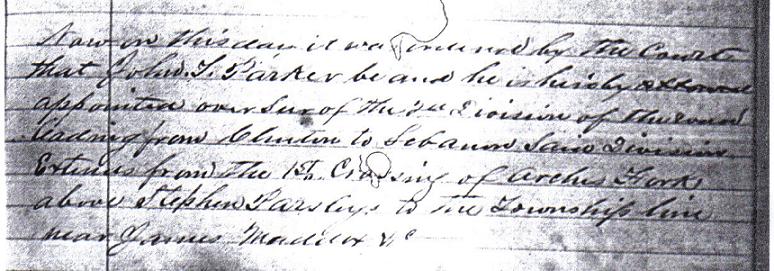 Now on this day it was ordered by the Court
that John T. Parker be and he is hereby
appointed over Seer of the 2nd Division of the road
leading from Clinton to Lebanon Said Division
Extends from the 1st Crossing of Archis Fork
above Stephen Parsleys to the Township line
near James Maddox &c